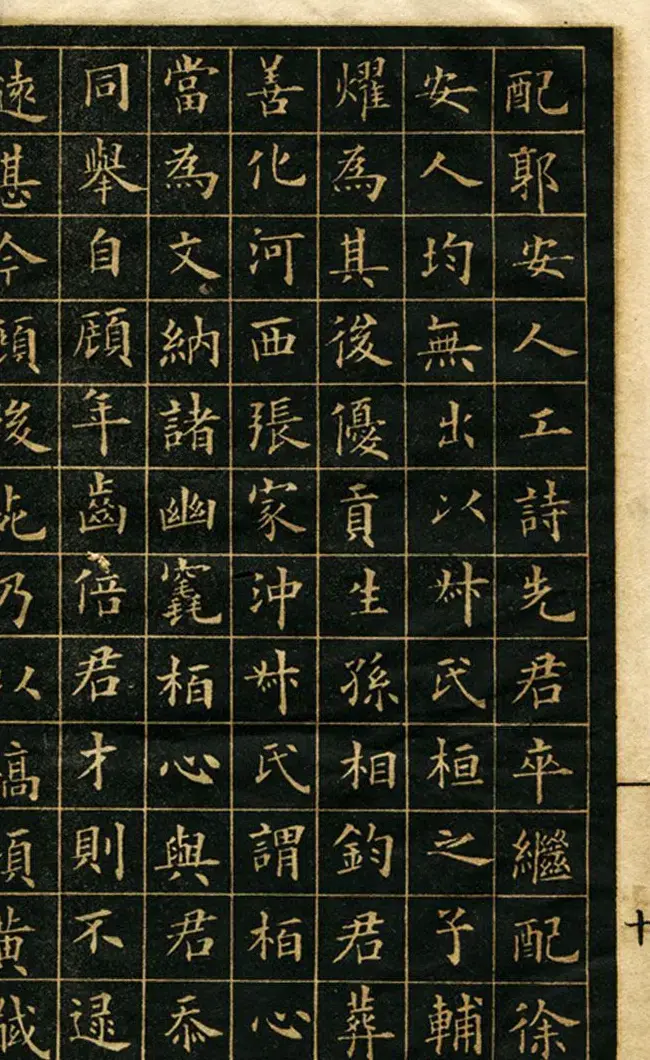 配郭安人工詩先君卒繼配徐
安人均無出以叔氏桓之子輔
燿為其後優貢生孫相鈞君葬
善化河西張家沖叔氏謂栢心
當為文納諸幽竁栢心與君忝
同舉自顧年齒倍君才則不逮
遠甚今顧後死乃以槁項黃馘
十